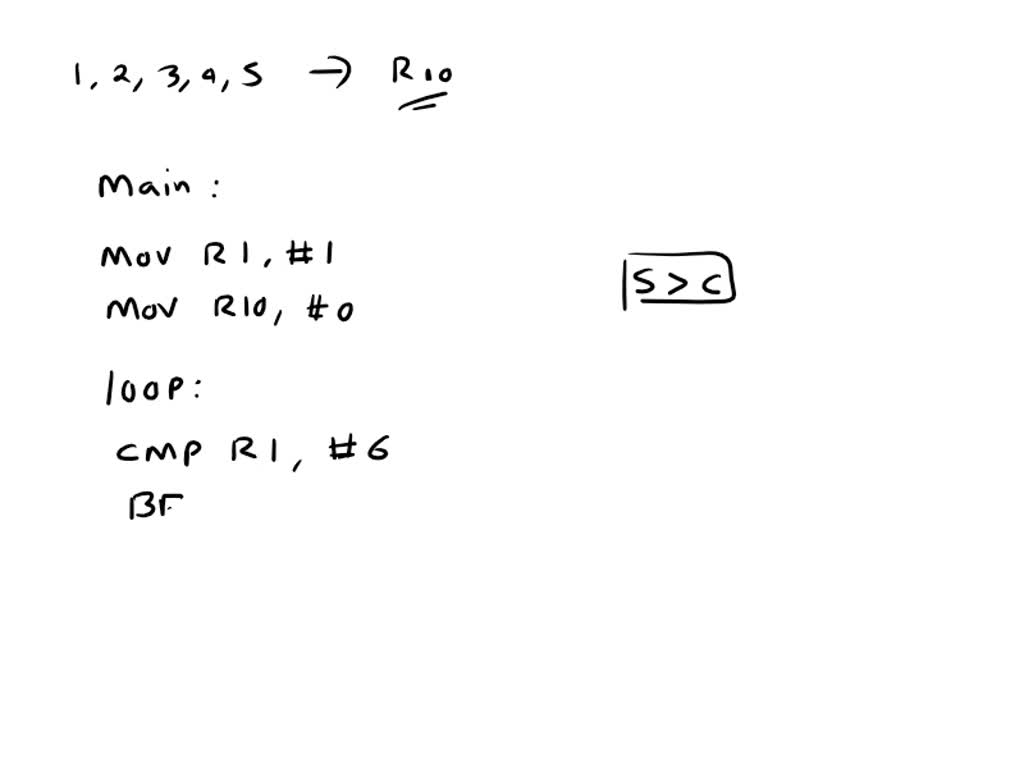 1, 2, 3, 4, 5 → R10
Main :
Mov R1, #1
Mov R10, #0
5 > C
loop:
CMP R1, #6
BE